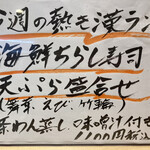 今週の熱々漢ラン
海鮮ちらし寿司
天ぷら盛合せ
(舞茸、えび、竹輪)
茶わん蒸し、味噌汁付き
1100円税込